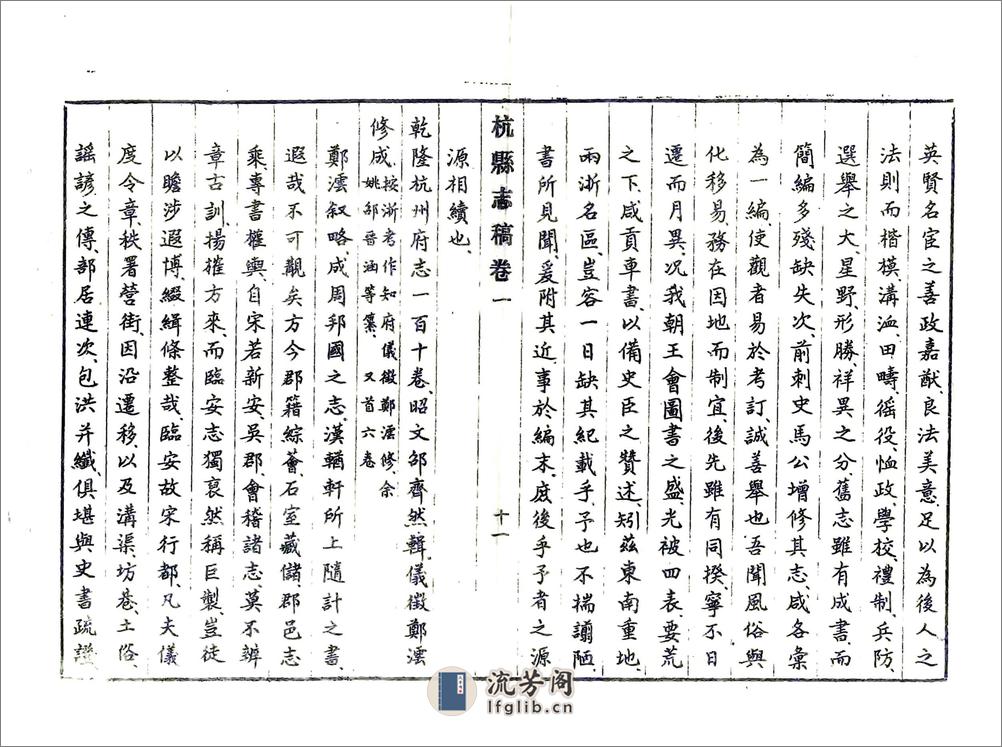 英賢名宦之善政嘉猷、良法美意、足以為後人之
法則而楷模、溝洫、田疇、徭役、恤政、學校、禮制、兵防、
選舉之大、星野、形勝、祥異之分、舊志雖有成書、而
簡編多殘缺失次、前刺史馬公增修其志、咸各彙
為一編、使觀者易於考訂、誠善舉也、吾聞風俗與
化移易、務在因地而制宜、後先雖有同揆、寧不日
遷而月異、况我朝王會圖書之盛、光被四表、要荒
之下、咸貢車書、以備史臣之贊述、矧茲東南重地、
兩浙名區、豈容一日缺其紀載乎、予也不揣譾陋、
書所見聞、爰附其近、事於編末、庶後乎予者之源
源相續也、
杭縣志稿卷一
十一
乾隆杭州府志一百十卷、昭文邵齊然輯、儀徵鄭澐
修成、按浙考作知府儀徵鄭澐修、余姚邵晉涵等纂、又首六卷
鄭澐叙略、成周邦國之志、漢輶軒所上隨計之書、
遐哉不可觀矣、方今郡籍綜薈、石室藏儲、郡邑志
乘、專書權輿、自宋若新安、吳郡、會稽諸志、莫不辨
章古訓、揚搉方來、而臨安志獨裒然稱巨製、豈徒
以瞻涉遐博、綴緝條整哉、臨安故宋行都、凡夫儀
度令章、秩署營衖、因沿遷移、以及溝渠坊巷、土俗
謡諺之傳、部居連次、包洪并纖、俱堪與史書疏證、
流芳阁
lfglib.cn